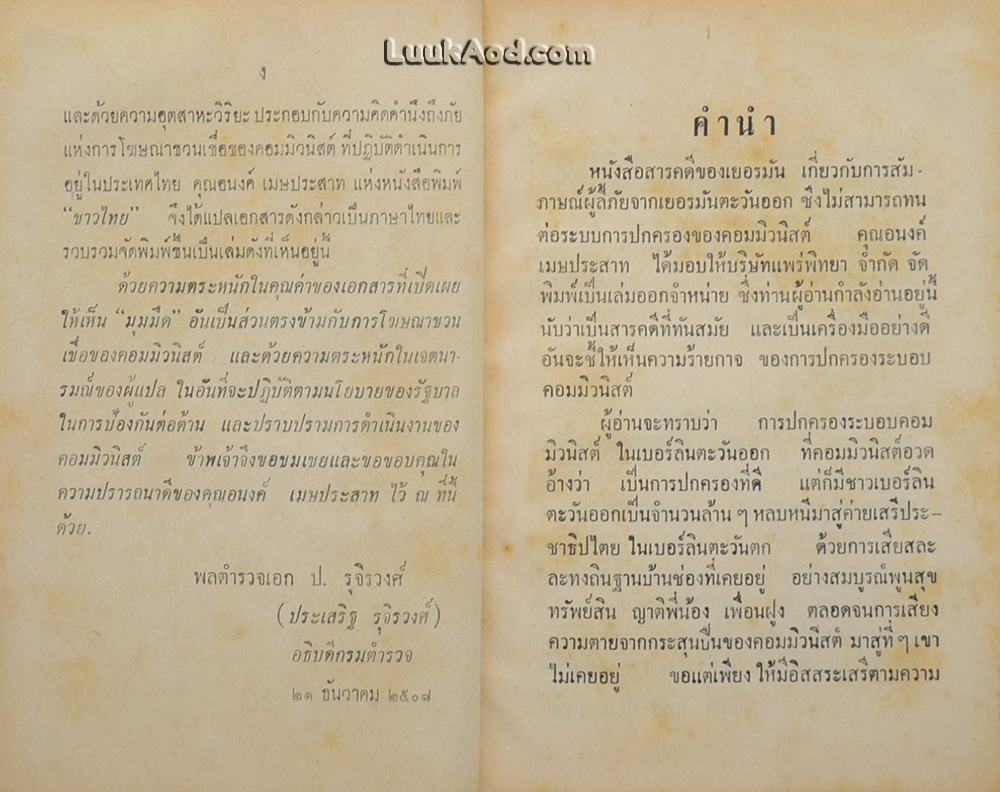 LuukAod.com
ง
และด้วยความอุตสาหะวิริยะ ประกอบกับความคิดคำนึงถึงภัย
แห่งการโฆษณาชวนเชื่อของคอมมิวนิสต์ ที่ปฏิบัติดำเนินการ
อยู่ในประเทศไทย คุณอนงค์ เมษประสาท แห่งหนังสือพิมพ์
“ชาวไทย” จึงได้แปลเอกสารดังกล่าวเป็นภาษาไทยและ
รวบรวมจัดพิมพ์ขึ้นเป็นเล่มดังที่เห็นอยู่นี้
ด้วยความตระหนักในคุณค่าของเอกสารที่เปิดเผย
ให้เห็น “มุมมืด” อันเป็นส่วนตรงข้ามกับการโฆษณาชวน
เชื่อของคอมมิวนิสต์ และด้วยความตระหนักในเจตนา-
รมณ์ของผู้แปล ในอันที่จะปฏิบัติตามนโยบายของรัฐบาล
ในการป้องกันต่อต้าน และปราบปรามการดำเนินงานของ
คอมมิวนิสต์ ข้าพเจ้าจึงขอชมเชยและขอขอบคุณใน
ความปรารถนาดีของคุณอนงค์ เมษประสาท ไว้ ณ ที่นี้
ด้วย.
พลตำรวจเอก ป. รุจิรวงศ์
(ประเสริฐ รุจิรวงศ์)
อธิบดีกรมตำรวจ
๒๑ ธันวาคม ๒๕๐๘
คำนำ
หนังสือสารคดีของเยอรมัน เกี่ยวกับการสัม-
ภาษณ์ผู้ลี้ภัยจากเยอรมันตะวันออก ซึ่งไม่สามารถทน
ต่อระบบการปกครองของคอมมิวนิสต์ คุณอนงค์
เมษประสาท ได้มอบให้บริษัทแพร่พิทยา จำกัด จัด
พิมพ์เป็นเล่มออกจำหน่าย ซึ่งท่านผู้อ่านกำลังอ่านอยู่นี้
นับว่าเป็นสารคดีที่ทันสมัย และเป็นเครื่องมืออย่างดี
อันจะชี้ให้เห็นความร้ายกาจ ของการปกครองระบอบ
คอมมิวนิสต์
ผู้อ่านจะทราบว่า การปกครองระบอบคอม
มิวนิสต์ ในเบอร์ลินตะวันออก ที่คอมมิวนิสต์อวด
อ้างว่า เป็นการปกครองที่ดี แต่ก็มีชาวเบอร์ลิน
ตะวันออกเป็นจำนวนล้าน ๆ หลบหนีมาสู่ค่ายเสรีประ-
ชาธิปไตย ในเบอร์ลินตะวันตก ด้วยการเสียสละ
ละทิ้งถิ่นฐานบ้านช่องที่เคยอยู่ อย่างสมบูรณ์พูนสุข
ทรัพย์สิน ญาติพี่น้อง เพื่อนฝูง ตลอดจนการเสี่ยง
ความตายจากกระสุนปืนของคอมมิวนิสต์ มาสู่ที่ ๆ เขา
ไม่เคยอยู่ ขอแต่เพียง ให้มีอิสสระเสรีตามความ